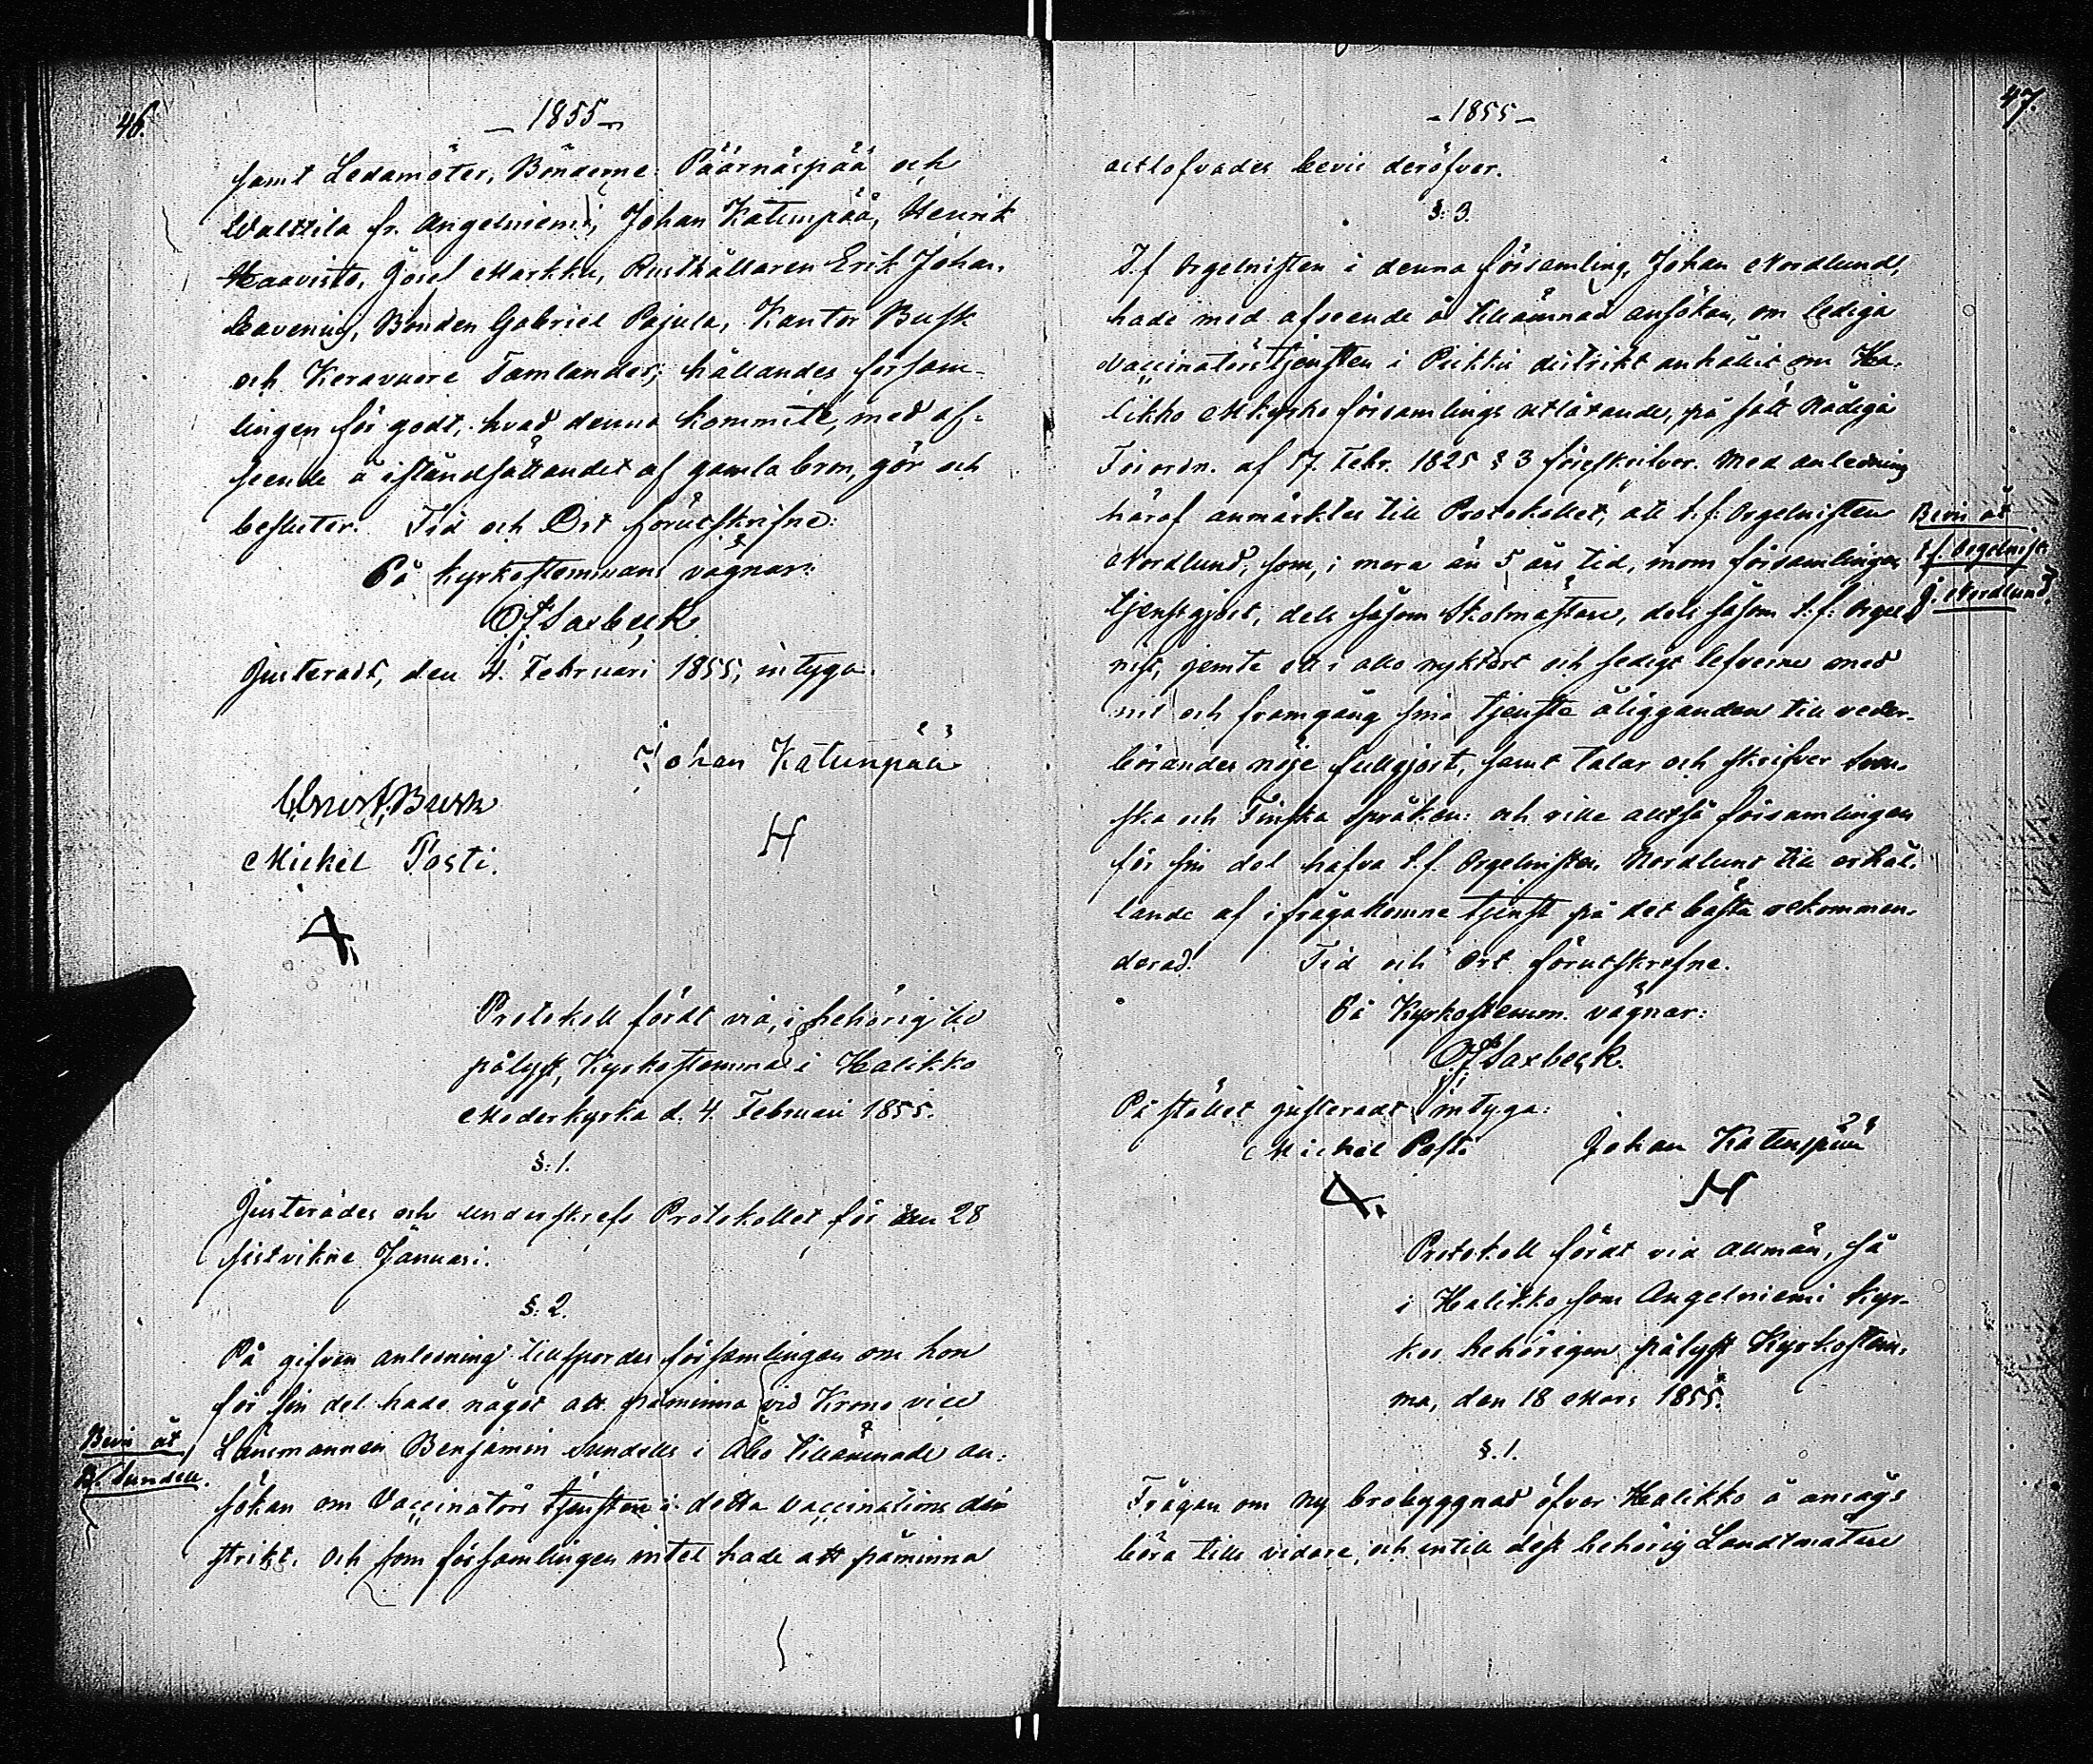 46.
1855
samt Ledamöter, Bönderne: Päärnäspää och
Walttila fr. Angelniemi, Johan Katunpää, Henrik
Haavisto, Josef Markku, Rusthållaren Erik Johan.
Bonden Gabriel Pajula, Kantor Busk
och Keravuore Tamlander; hållandes försam-
lingen för godt, hvad denna kommité, med af-
seende å iståndsättandet af gamla bron, gör och
besluter. Tid och Ort förutskrifne:
På Kyrkostemmans vägnar:
Saxbeck
Justeradt, den 4. Februari 1855, intyga:
Johan Katunpää
Busk
H
Mickel Posti.
Protokoll fördt vid, i behörig tid
pålyst, Kyrkostemma i Halikko
Moderkyrka d. 4. Februari 1855.
§: 1.
Justerades och underskrefs Protokollet för den 28
sistvikne Januari.
§: 2.
På gifven anledning tillspordes församlingen om hon
för sin del hade något att påminna vid Krono vice
Bevis åt
Länsmannen Benjamin Sundells i Åbo tillämnade an-
B. Sundell.
sökan om Vaccinators tjensten i detta vaccinations di-
strikt. Och som församlingen intet hade att påminna
47.
1855
utlofvades bevis deröfver.
§: 3.
T.f. Orgelnisten i denna församling, Johan Nordlund,
hade med afseende å tillämnad ansökan, om lediga
Vaccinatörstjensten i Piikkis distrikt anhållit om Ha-
likko M.kyrko församlings utlåtande, på sätt Nådiga
Förordn. af 17. Febr. 1825 § 3 föreskrifver. Med anledning
häraf anmärktes till Protokollet, att t.f. Orgelnisten
Bevis åt
Nordlund, som, i mera än 5 års tid, inom församlingen
t.f. Orgelnist
tjenstgjort, dels såsom Skolmästare, dels såsom t.f. Orgel-
J. Nordlund
nist, jemte ett i allo nyktert och sedigt lefverne med
nit och framgång sina tjenste åligganden till veder-
börandes nöje fullgjort, samt talar och skrifver Sven-
ska och Finska språken: och ville alltså församlingen
för sin del hafva t.f. Orgelnisten Nordlund till erhål-
lande af ifrågakomne tjenst på det bästa rekommen-
derad. Tid och Ort förutskrefne.
På Kyrkostemm. vägnar:
Saxbeck.
På stället justeradt, intyga:
Michel Posti Johan Katunpää
H
Protokoll fördt vid Allmän, så
i Halikko som Angelniemi Kyr-
kor behörigen pålyst Kyrkostem-
ma, den 18 Mars 1855.
§. 1.
Frågan om ny brobyggnad öfver Halikko å ansågs
böra tills vidare, och intill dess behörig Landtmätare